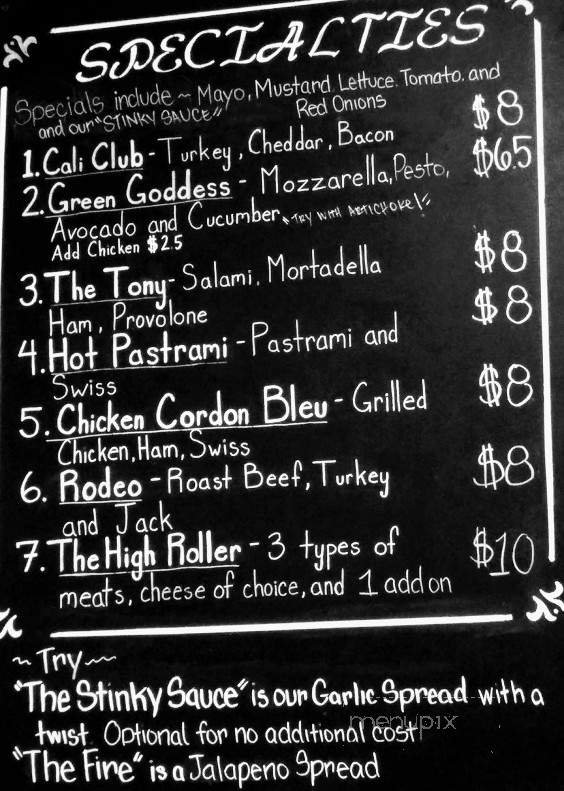 SPECIALTIES
Specials include ~ Mayo, Mustard, Lettuce, Tomato, and
and our "STINKY SAUCE" Red Onions
1. Cali Club - Turkey, Cheddar, Bacon $8
2. Green Goddess - Mozzarella, Pesto, $6.5
Avocado and Cucumber *TRY WITH ARTICHOKE!*
Add Chicken $2.5
3. The Tony - Salami, Mortadella $8
Ham, Provolone
4. Hot Pastrami - Pastrami and $8
Swiss
5. Chicken Cordon Bleu - Grilled $8
Chicken, Ham, Swiss
6. Rodeo - Roast Beef, Turkey $8
and Jack
7. The High Roller - 3 types of $10
meats, cheese of choice, and 1 add on
~ Try ~
"The Stinky Sauce" is our Garlic Spread with a
twist. Optional for no additional cost
menupix
"The Fine" is a Jalapeno Spread